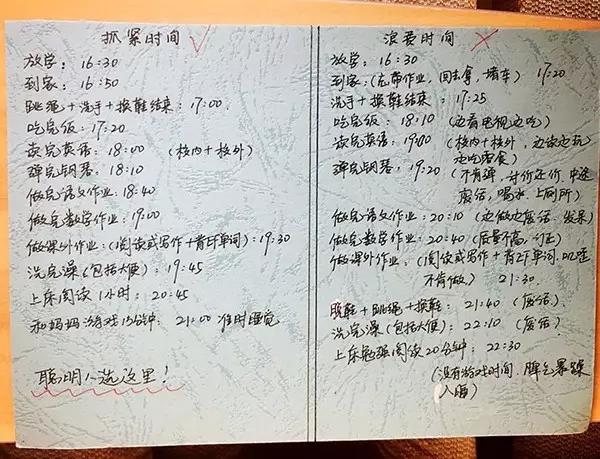 抓紧时间 √
放学：16:30
到家：16:50
跳绳+洗手+换鞋结束：17:00
吃完饭：17:20
读完英语：18:00 （校内+校外）
弹完钢琴：18:10
做完语文作业：18:40
做完数学作业：19:00
做课外作业：（阅读或写作+背5个单词）：19:30
洗完澡（包括大便）：19:45
上床阅读1小时：20:45
和妈妈游戏15分钟：21:00 准时睡觉
聪明人选这里！
浪费时间 ×
放学：16:30
到家：（忘带作业，回去拿，堵车） 17:20
洗手+换鞋结束：17:25
吃完饭：18:10 （边看电视边吃）
读完英语：19:00 （校内+校外，边读边玩
边吃零食）
弹完钢琴：19:20 （不肯弹，讨价还价，中途
废话，喝水，上厕所）
做完语文作业：20:10 （边做边废话，发呆）
做完数学作业：20:40 （质量不高，订正）
做课外作业：（阅读或写作+背5个单词，
不肯做） 21:30
脱鞋+跳绳+换鞋：21:40 （废话）
洗完澡（包括大便）：22:10 （废话）
上床勉强阅读20分钟：22:30
（没有游戏时间，脾气暴躁
入睡）